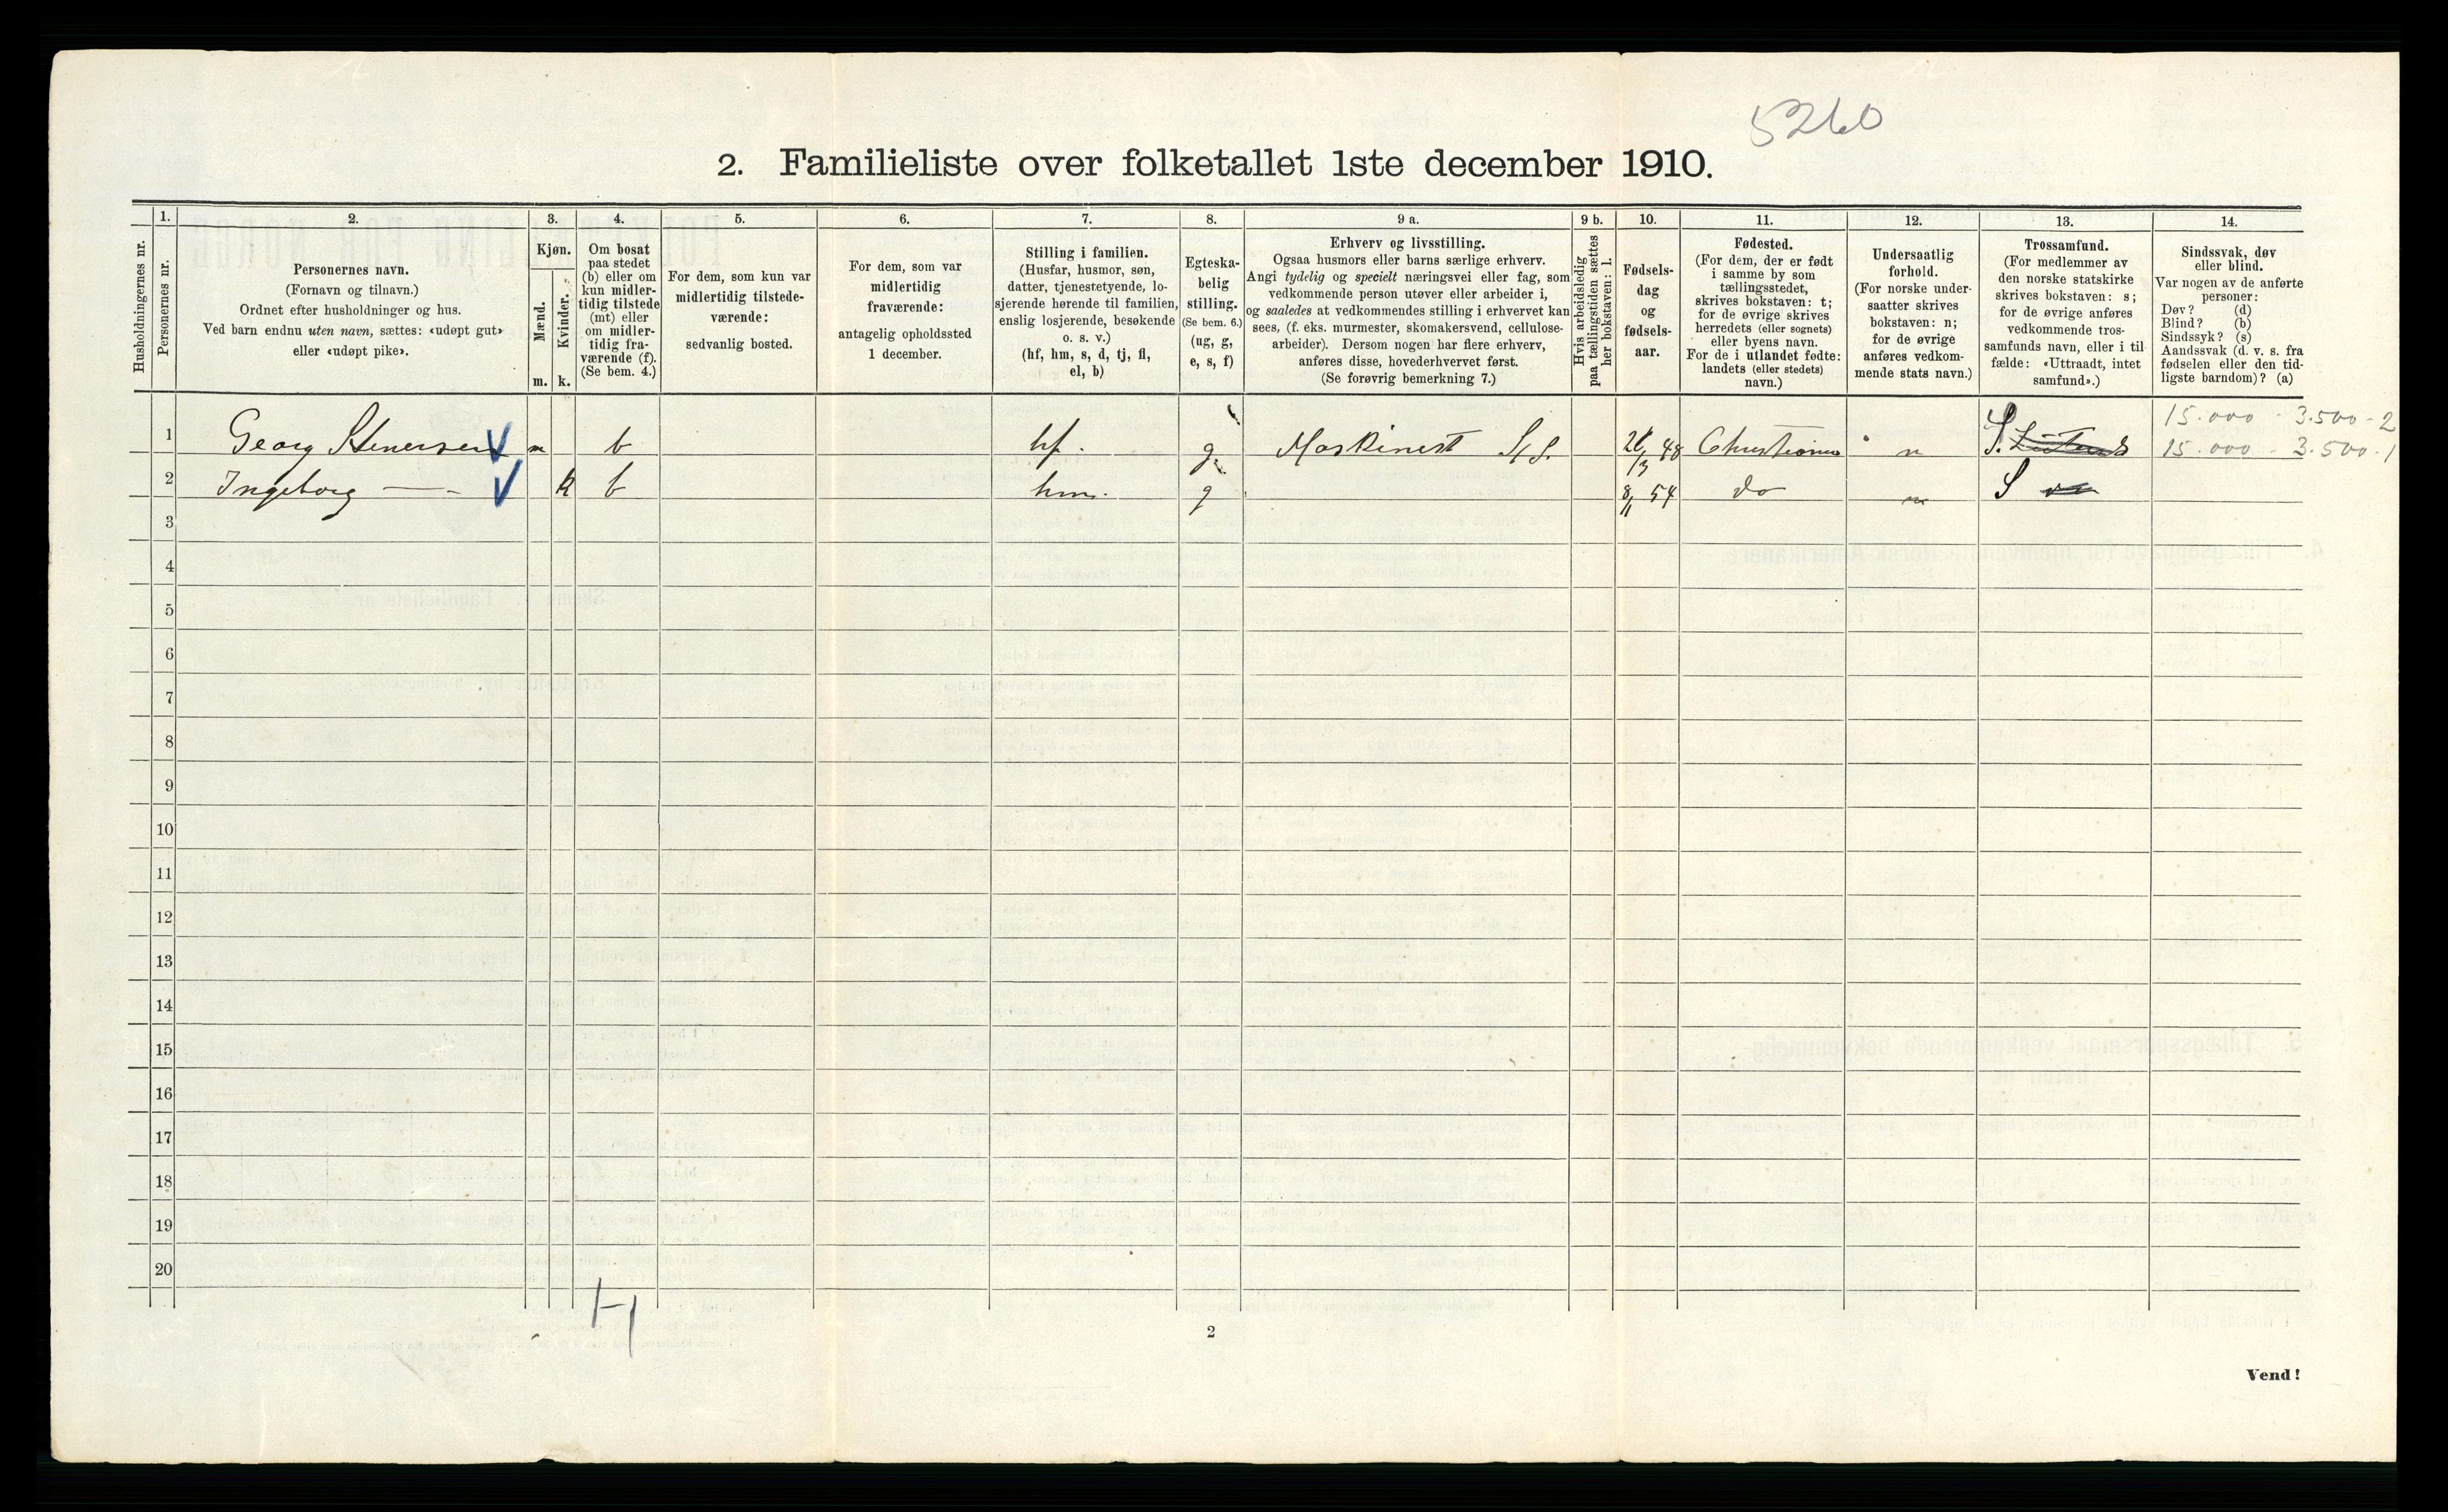 5260
2. Familieliste over folketallet 1ste december 1910.
Husholdningernes nr.
1.
Personernes nr.
2.
Personernes navn.
(Fornavn og tilnavn.)
Ordnet efter husholdninger og hus.
Ved barn endnu uten navn, sættes: «udøpt gut»
eller «udøpt pike».
3.
Kjøn.
Mænd.
m.
Kvinder.
k.
4.
Om bosat
paa stedet
(b) eller om
kun midler-
tidig tilstede
(mt) eller
om midler-
tidig fra-
værende (f).
(Se bem. 4.)
5.
For dem, som kun var
midlertidig tilstede-
værende:
sedvanlig bosted.
6.
For dem, som var
midlertidig
fraværende:
antagelig opholdssted
1 december.
7.
Stilling i familien.
(Husfar, husmor, søn,
datter, tjenestetyende, lo-
sjerende hørende til familien,
enslig losjerende, besøkende
o. s. v.)
(hf, hm, s, d, tj, fl,
el, b)
8.
Egteska-
belig
stilling.
(Se bem. 6.)
(ug, g,
e, s, f)
9 a.
Erhverv og livsstilling.
Ogsaa husmors eller barns særlige erhverv.
Angi tydelig og specielt næringsvei eller fag, som
vedkommende person utøver eller arbeider i,
og saaledes at vedkommendes stilling i erhvervet kan
sees, (f. eks. murmester, skomakersvend, cellulose-
arbeider). Dersom nogen har flere erhverv,
anføres disse, hovederhvervet først.
(Se forøvrig bemerkning 7.)
9 b.
Hvis arbeidsledig
paa tællingstiden sættes
her bokstaven: l.
10.
Fødsels-
dag
og
fødsels-
aar.
11.
Fødested.
(For dem, der er født
i samme by som
tællingsstedet,
skrives bokstaven: t;
for de øvrige skrives
herredets (eller sognets)
eller byens navn.
For de i utlandet fødte:
landets (eller stedets)
navn.)
12.
Undersaatlig
forhold.
(For norske under-
saatter skrives
bokstaven: n;
for de øvrige
anføres vedkom-
mende stats navn.)
13.
Trossamfund.
(For medlemmer av
den norske statskirke
skrives bokstaven: s;
for de øvrige anføres
vedkommende tros-
samfunds navn, eller i til
fælde: «Uttraadt, intet
samfund».)
14.
Sindssvak, døv
eller blind.
Var nogen av de anførte
personer:
Døv? (d)
Blind? (b)
Sindssyk? (s)
Aandssvak (d. v. s. fra
fødselen eller den tid-
ligste barndom)? (a)
15.000 - 3.500 - 2
1 Georg Stenersen m b hf. g Maskinist 26/3 48 Christiania n S. 15.000 - 3.500 - 1
2 Ingeborg —— k b hm. g 8/11 54 do n S
3
4
5
6
7
8
9
10
11
12
13
14
15
16
17
18
19
20
2
Vend!